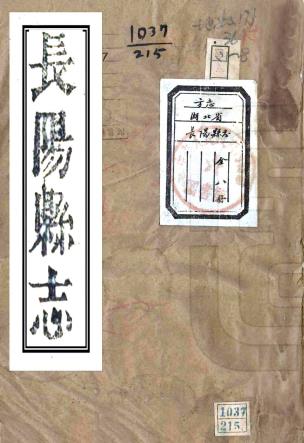 長陽縣志
1037
215
方志
湖北省
長陽縣志
全八冊
1037
215